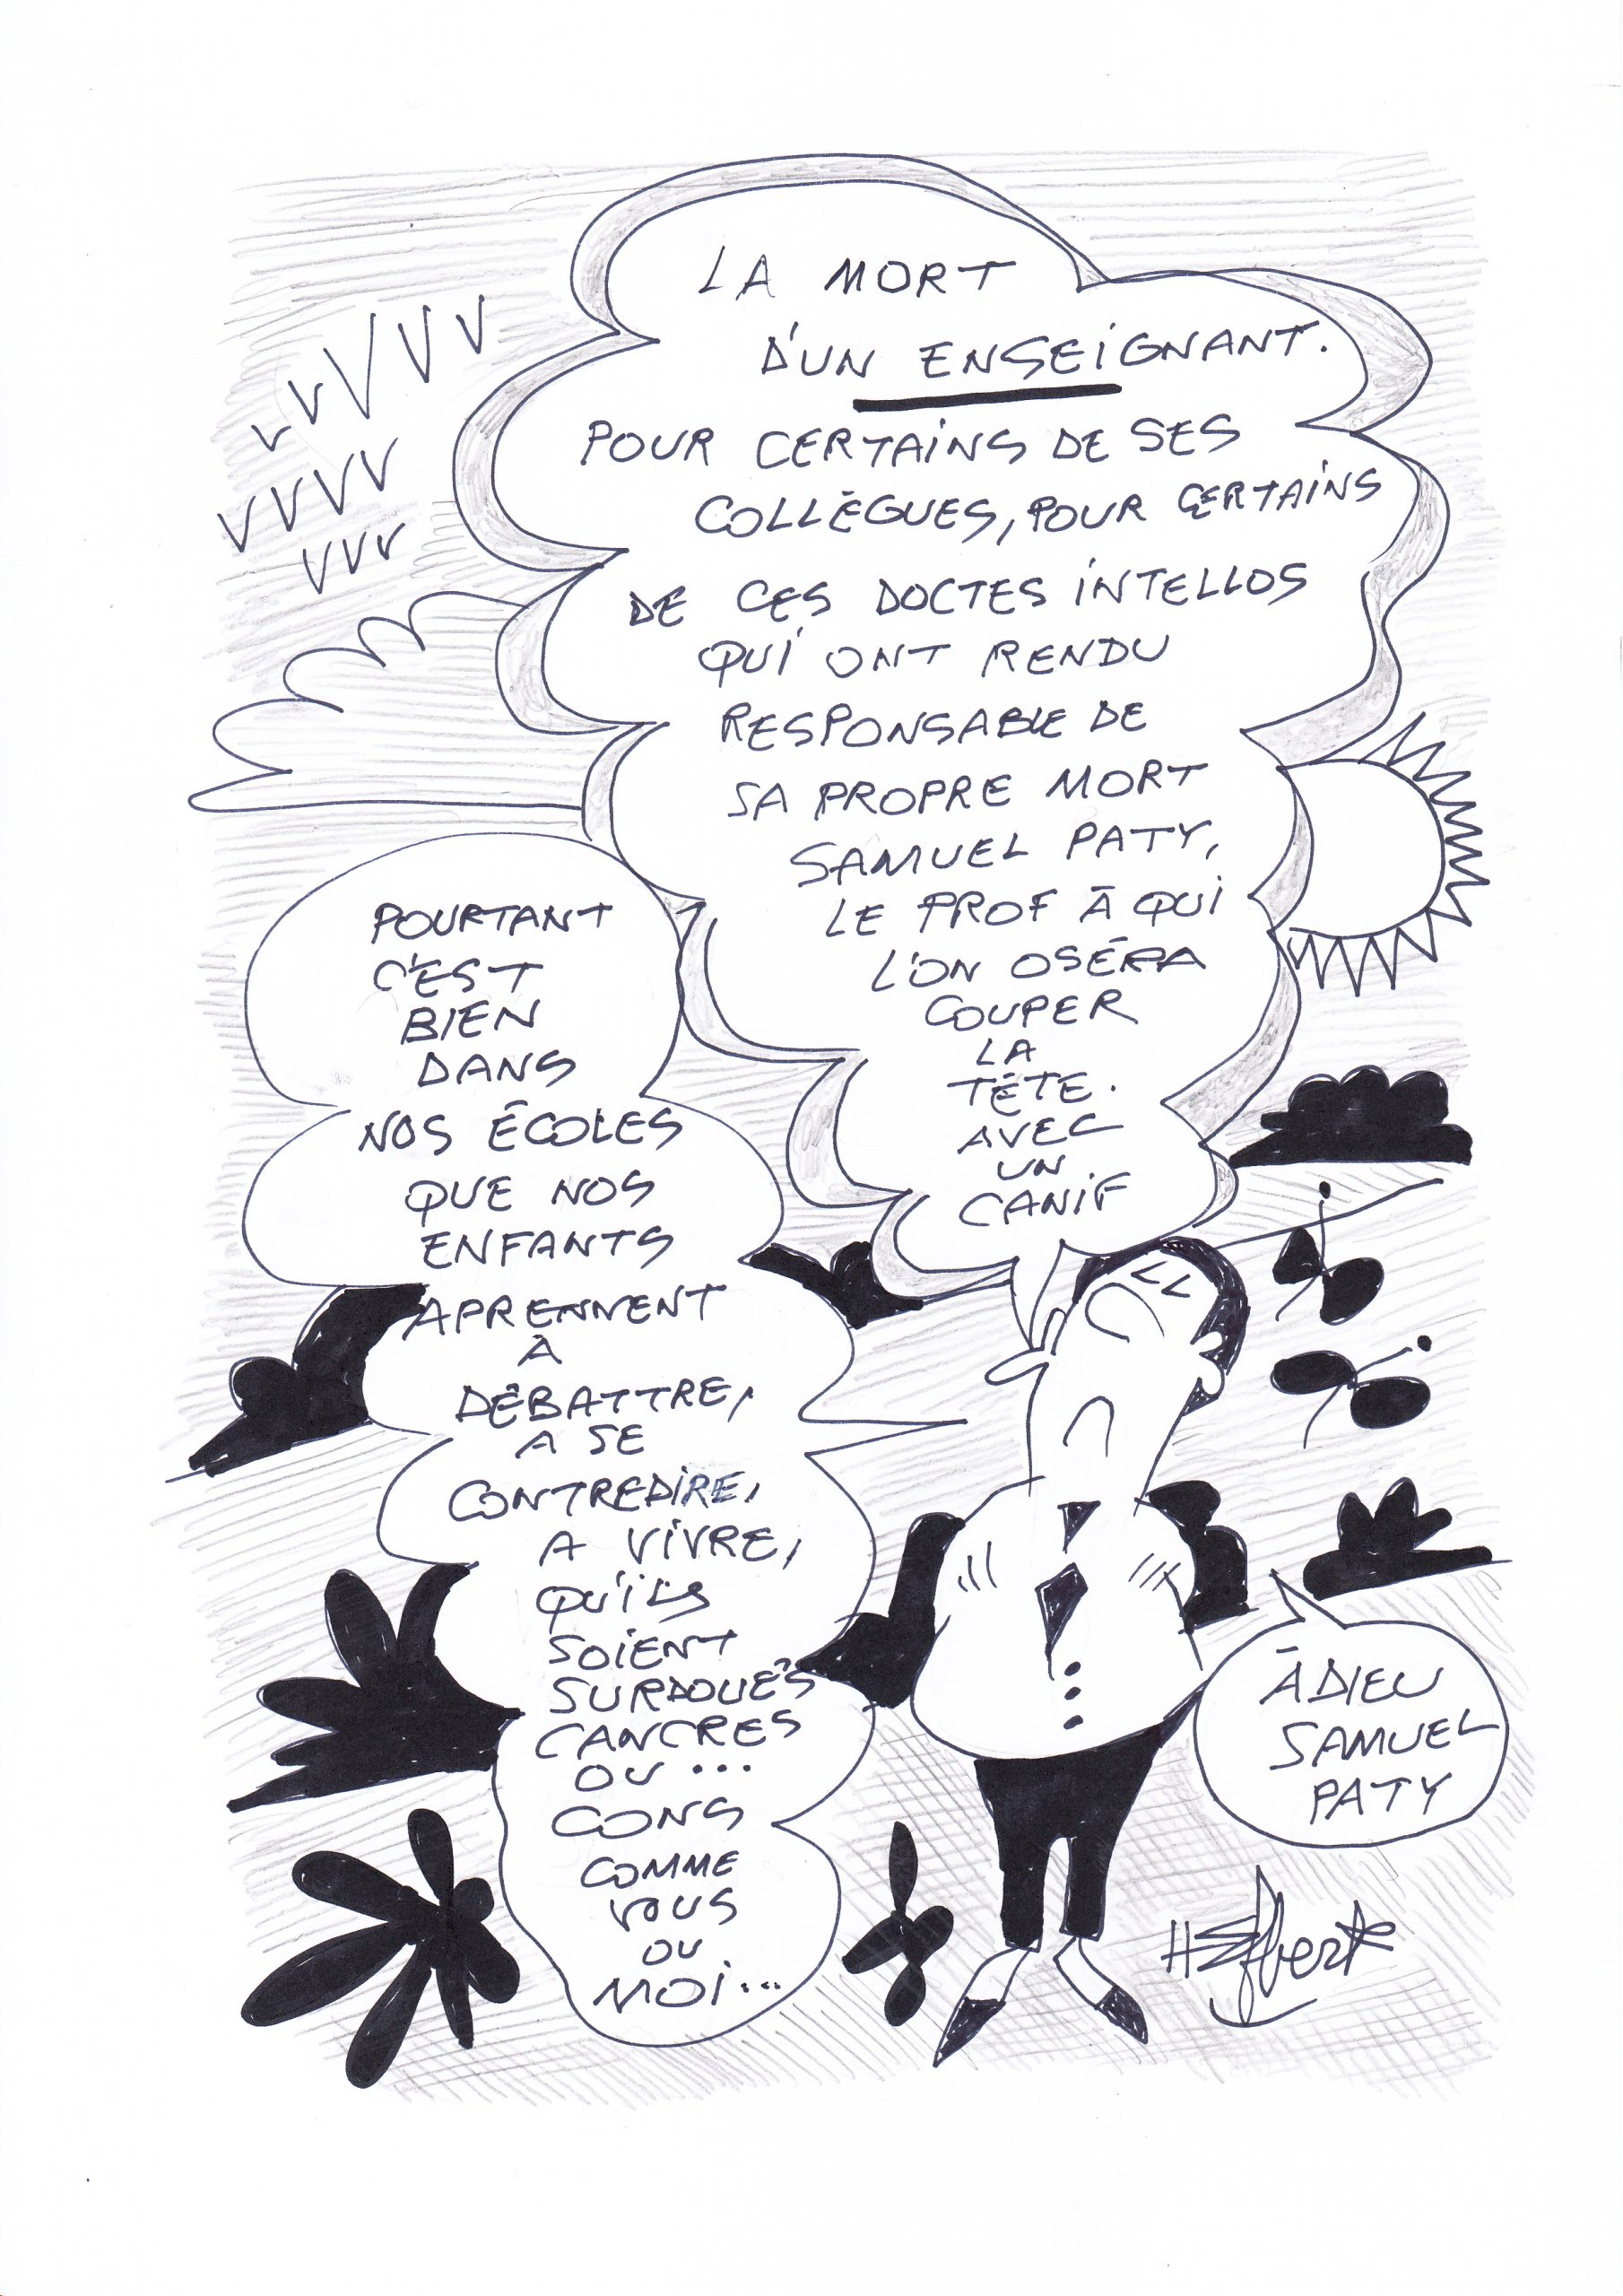 LA MORT
D'UN ENSEIGNANT.
POUR CERTAINS DE SES
COLLÈGUES, POUR CERTAINS
DE CES DOCTES INTELLOS
QUI ONT RENDU
RESPONSABLE DE
SA PROPRE MORT
SAMUEL PATY,
LE PROF À QUI
L'ON OSÉRA
COUPER
LA
TÊTE.
AVEC
UN
CANIF
POURTANT
C'EST
BIEN
DANS
NOS ÉCOLES
QUE NOS
ENFANTS
APRENNENT
À
DÉBATTRE,
A SE
CONTREDIRE,
A VIVRE,
QU'ILS
SOIENT
SURDOUÉS
CANCRES
OU...
CONS
COMME
VOUS
OU
MOI...
ÀDIEU
SAMUEL
PATY